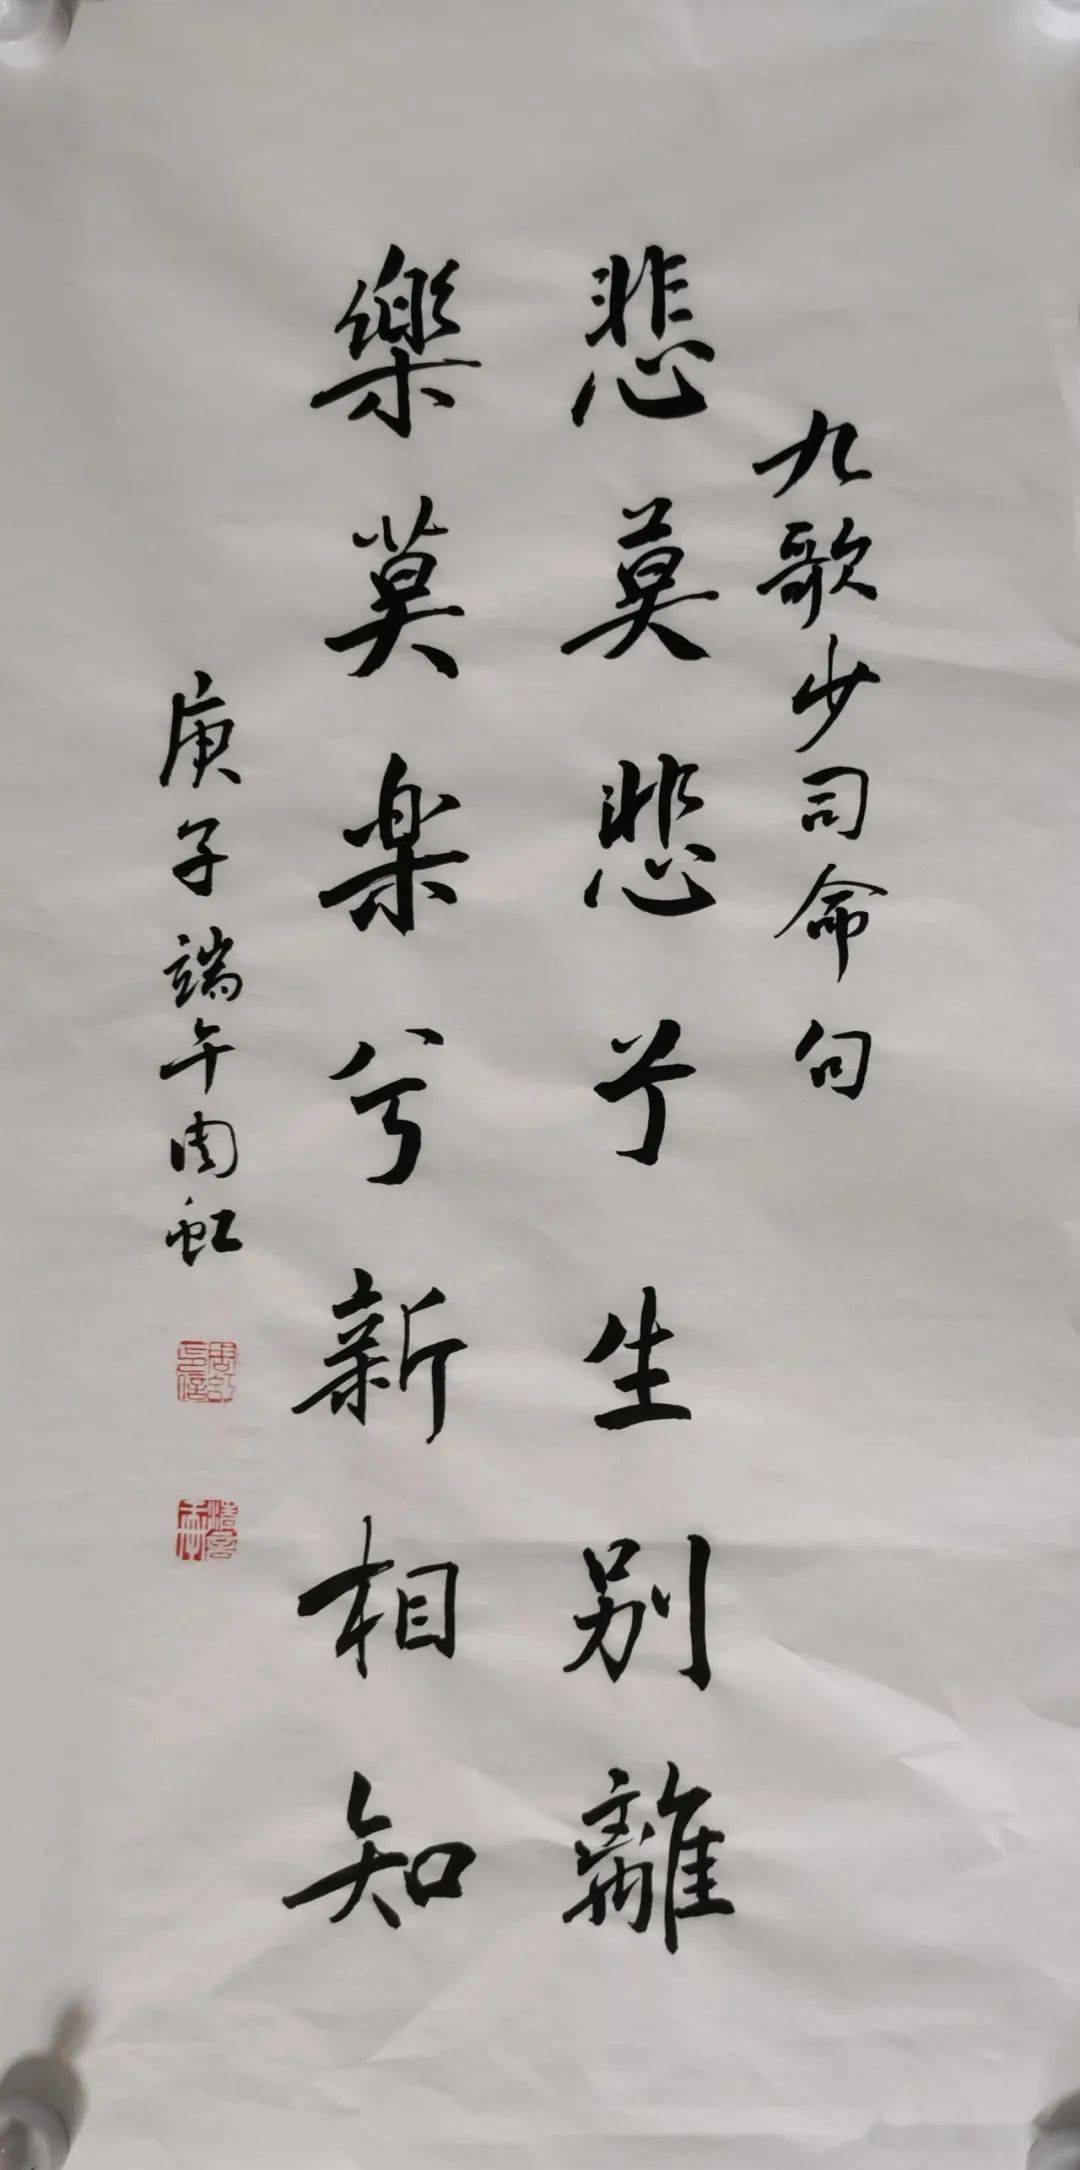 九歌少司命句
悲莫悲兮生别離
樂莫楽兮新相知
庚子端午周虹
周虹印信